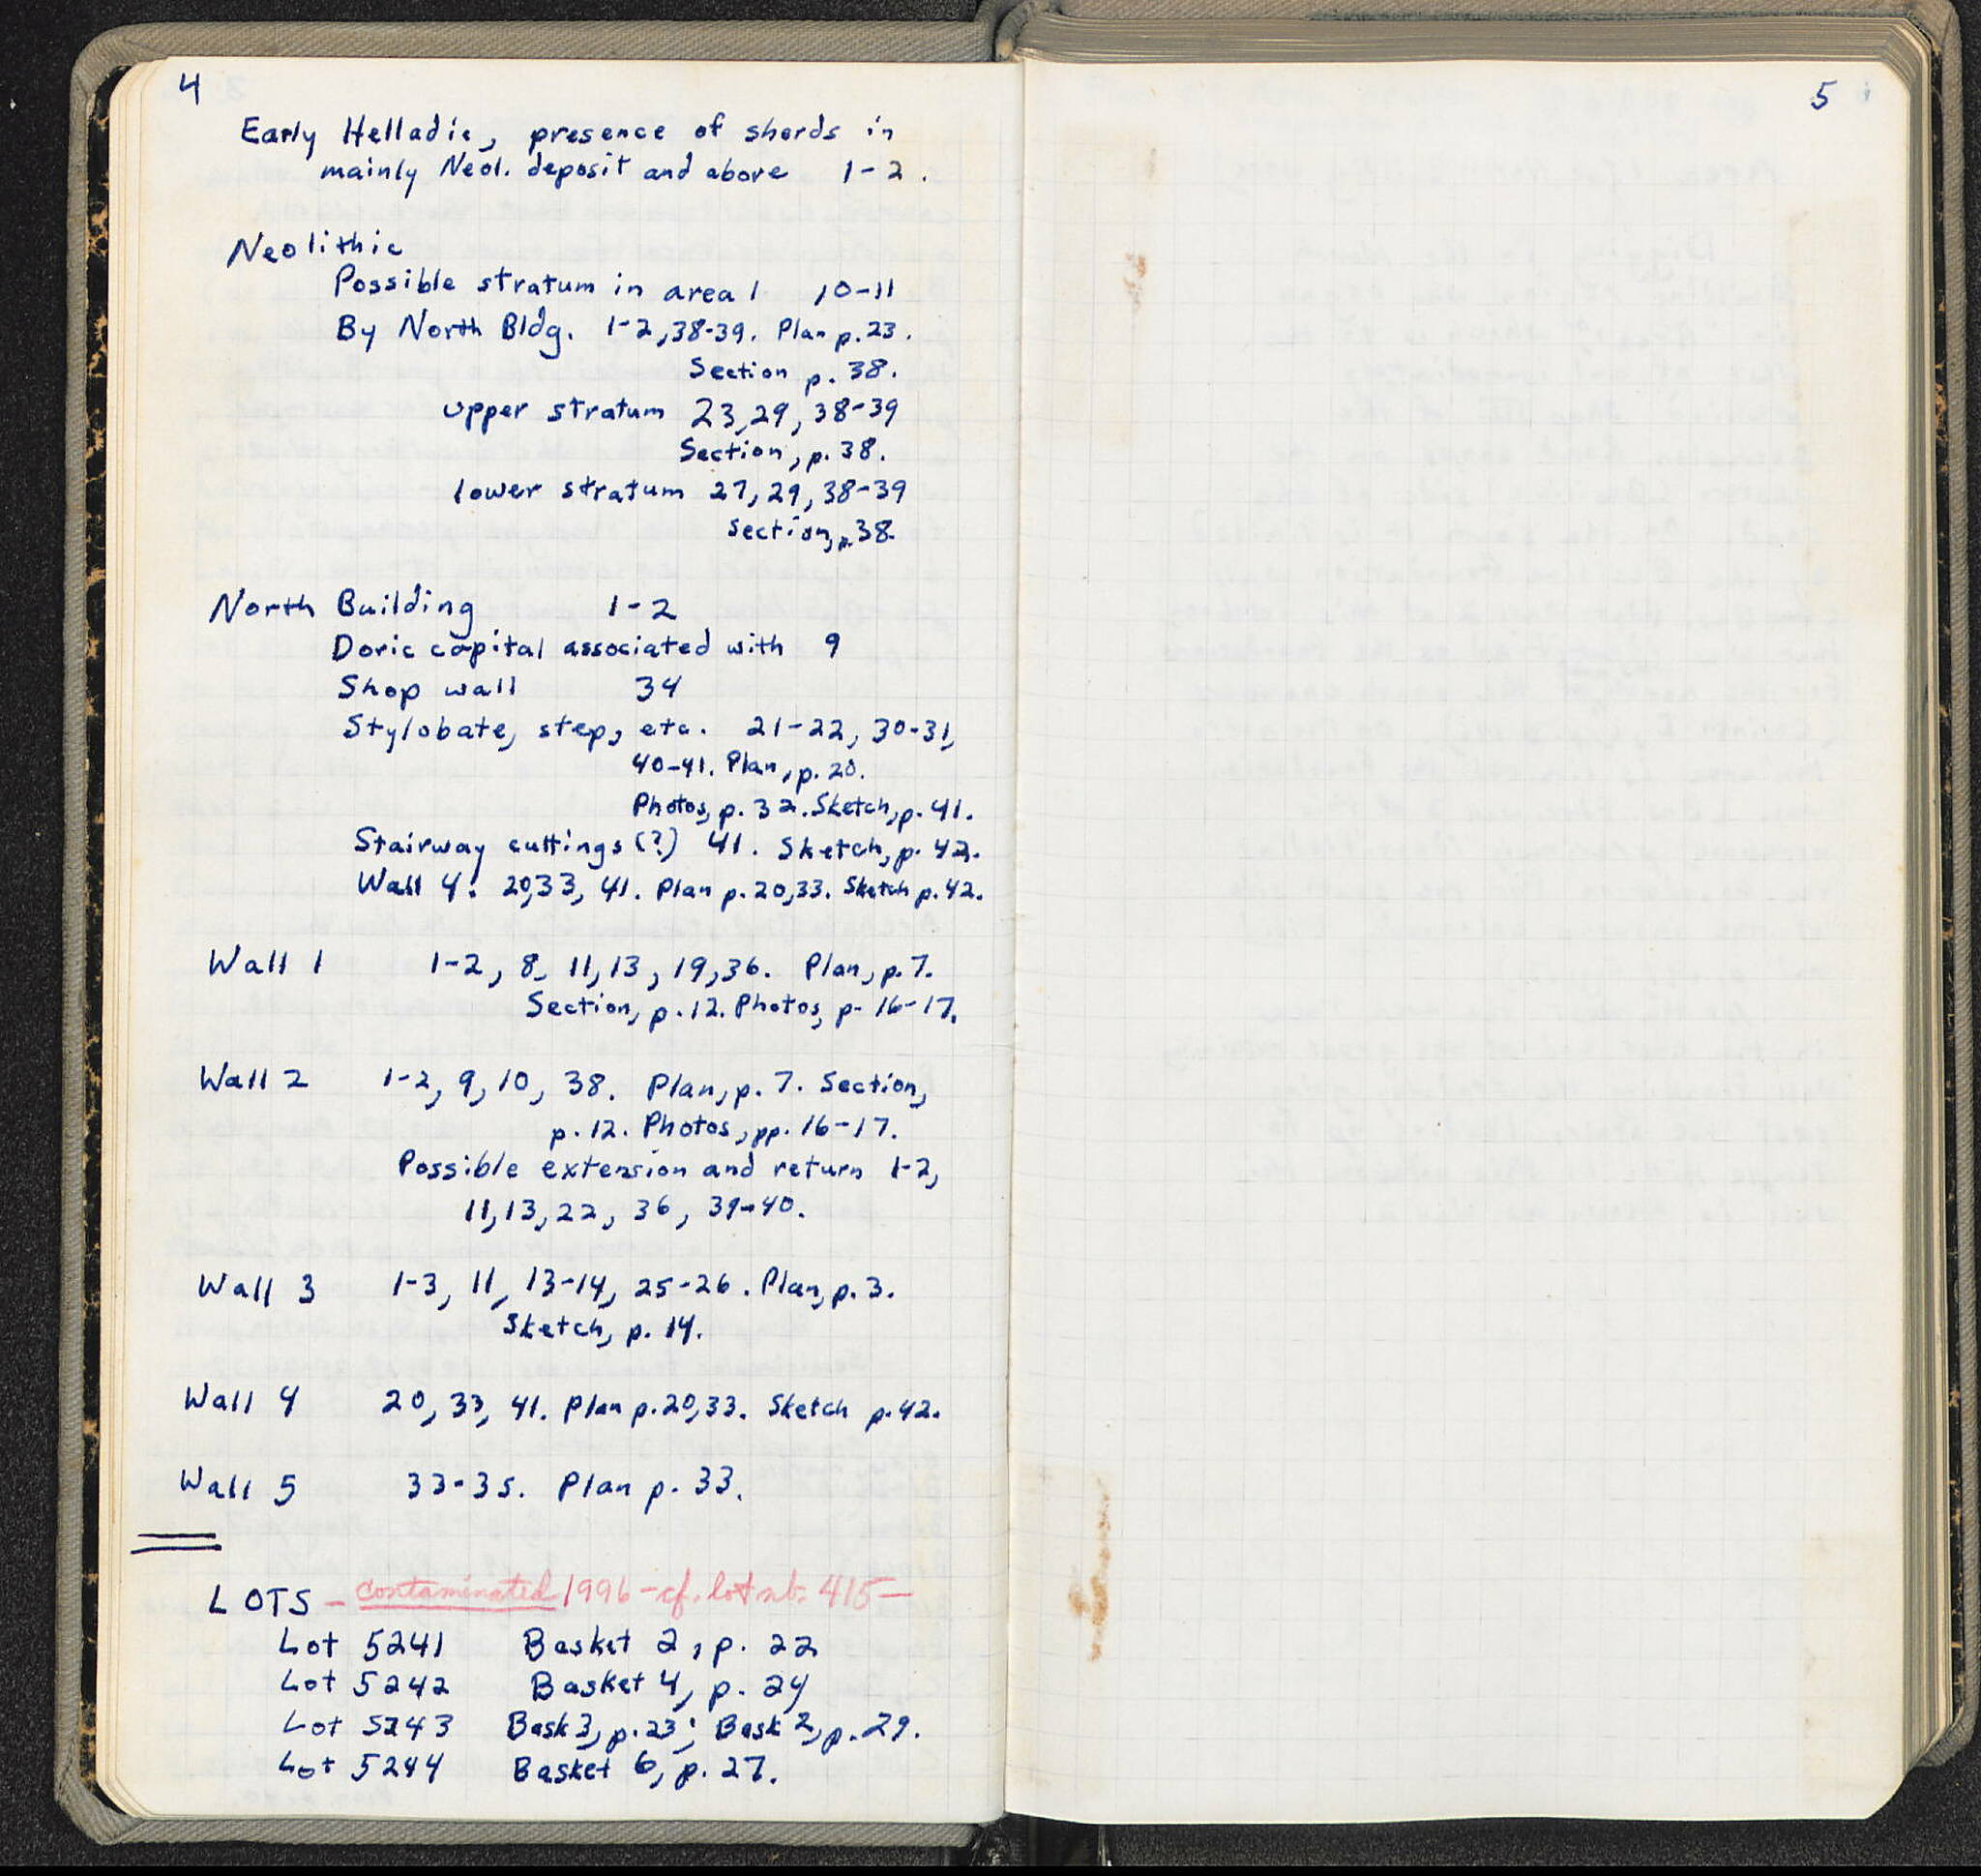 4
Early Helladic, presence of sherds in
mainly Neol. deposit and above 1-2.
Neolithic
Possible stratum in area 1 10-11
By North Bldg. 1-2, 38-39. Plan p. 23.
Section p. 38.
upper stratum 23, 29, 38-39
Section, p. 38.
lower stratum 27, 29, 38-39
section, p. 38.
North Building 1-2
Doric capital associated with 9
Shop wall 34
Stylobate, step, etc. 21-22, 30-31,
40-41. Plan, p. 20.
Photos, p. 32. Sketch, p. 41.
Stairway cuttings (?) 41. Sketch, p. 42.
Wall 4: 20, 33, 41. Plan p. 20, 33. Sketch p. 42.
Wall 1 1-2, 8, 11, 13, 19, 36. Plan, p. 7.
Section, p. 12. Photos, p. 16-17.
Wall 2 1-2, 9, 10, 38. Plan, p. 7. Section,
p. 12. Photos, pp. 16-17.
Possible extension and return 1-2,
11, 13, 22, 36, 39-40.
Wall 3 1-3, 11, 13-14, 25-26. Plan, p. 3.
Sketch, p. 14.
Wall 4 20, 33, 41. Plan p. 20, 33. Sketch p. 42.
Wall 5 33-35. Plan p. 33.
LOTS - contaminated 1996 - cf. lot nb. 415 -
Lot 5241 Basket 2, p. 22
Lot 5242 Basket 4, p. 24
Lot 5243 Bask 3, p. 23; Bask 2, p. 29.
Lot 5244 Basket 6, p. 27.
5